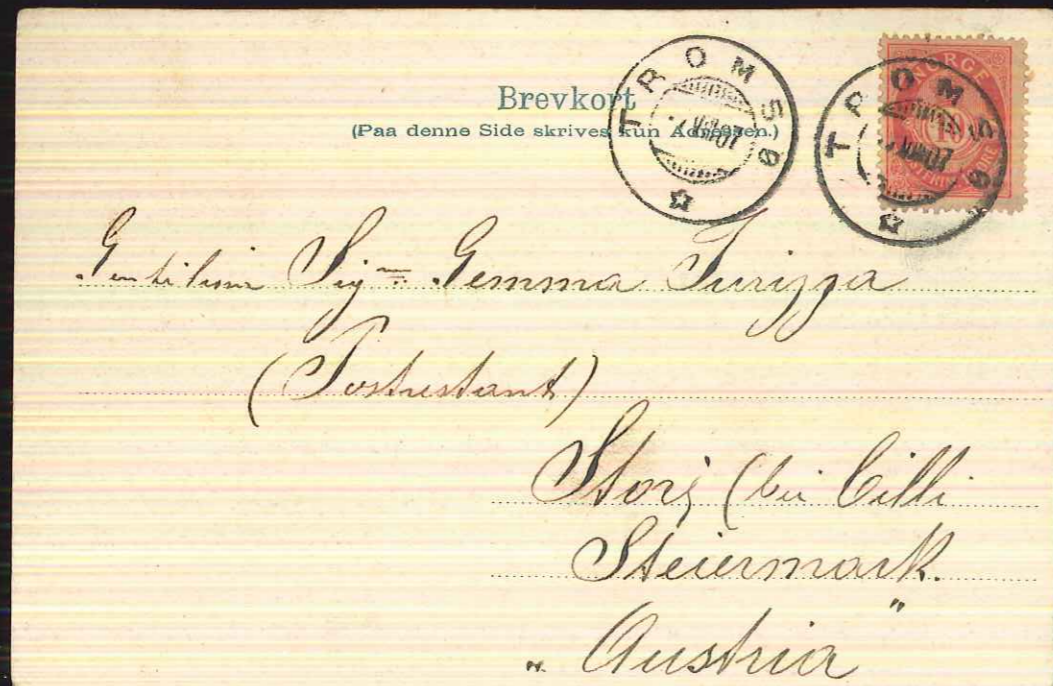 Brevkort
(Paa denne Side skrives kun Adressen.)
TROMSØ
07
TROMSØ
07
NORGE
Sig.na Gemma
(Postrestant)
Store (bei Cilli
Steiermark.
"Austria"